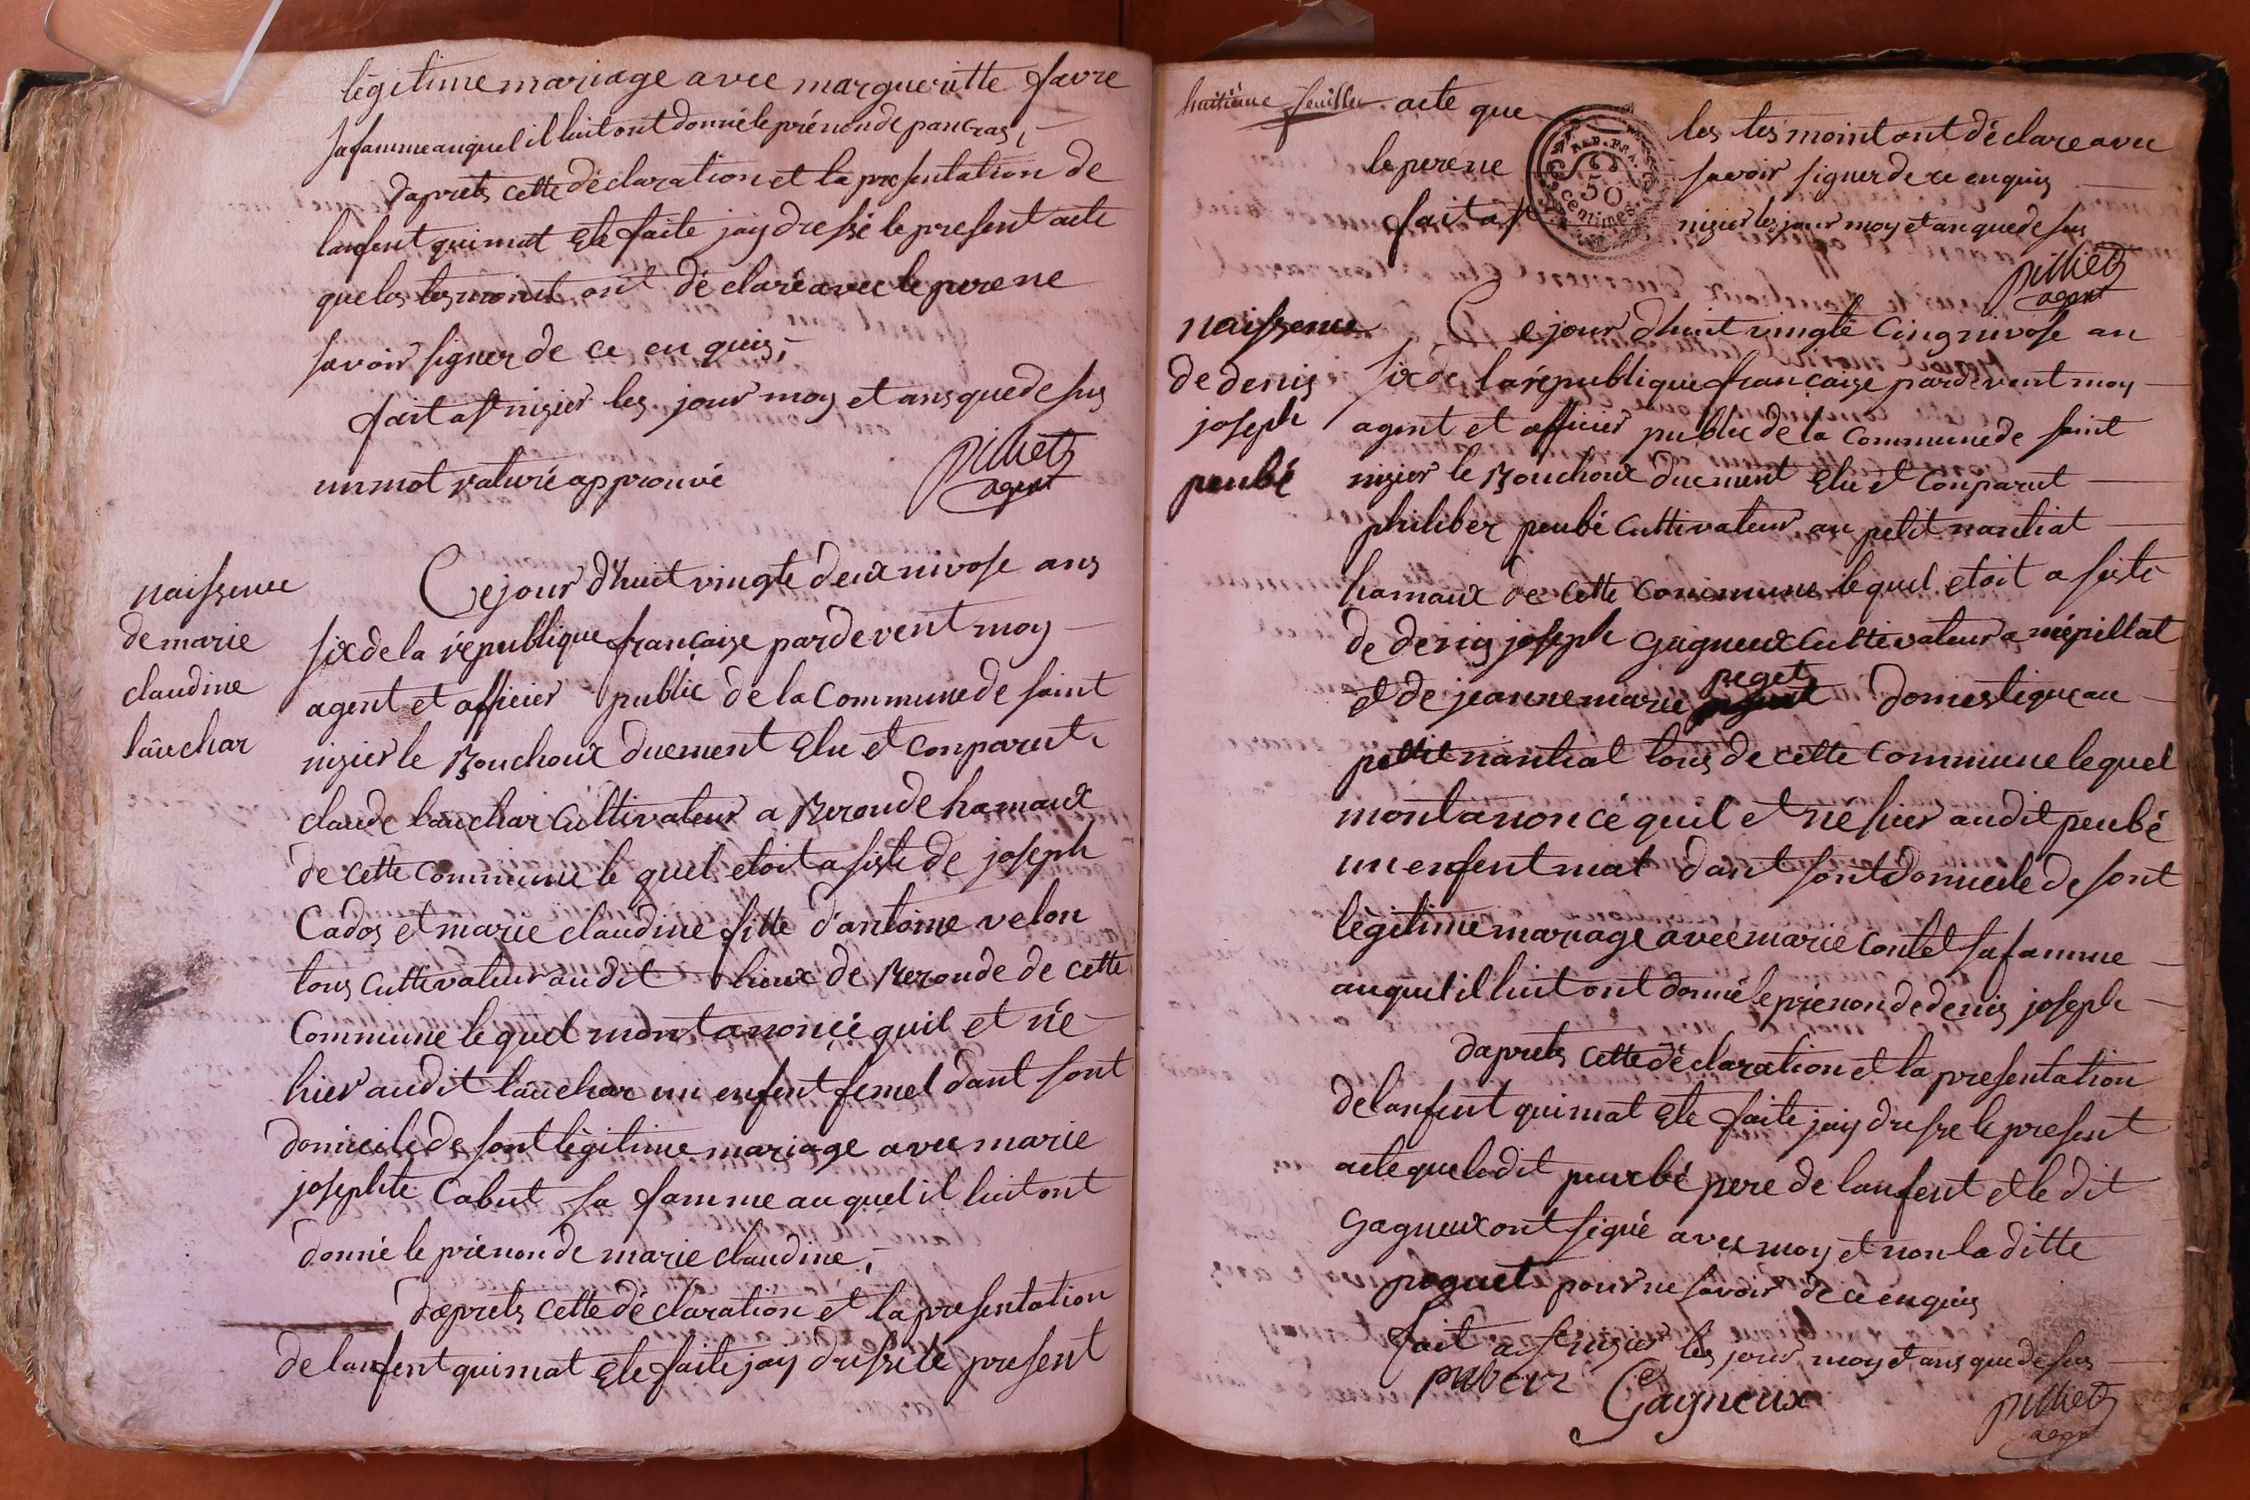 légitime mariage avec margueritte favre
sa famme auquel il luit ont donné le prénon de pancras,
daprets cette déclaration et la presentation de
lanfent qui mat Ete faite jay dressé le present acte
que les tesmoint ont déclaré avec le pere ne
savoir signer de ce en quis,
fait a st nizier les jour moy et ans que de sus
un mot raturé approuvé
pilliet
agent
naissence
de marie
claudine
lâuchar
Ce jour d'huit vingte deux nivose ans
six de la république française pardevent moy
agent et officier public de la commune de saint
nizier le Bouchoux duement Elu et conparut
claude lauchar cultivateur a Beronde hamaux
de cette commune le quel etoit asiste de joseph
Cados et marie claudine fille d'antoine velon
tous cultivateur audit lieux de Beronde de cette
Commune lequel mont anoncé quil et né
hier audit lâuchar un enfent femel dant sont
domicile de sont légitime mariage avec marie
josephte Cabut sa famme auquel il luit ont
donné le prénon de marie claudine,
daprets cette déclaration et la presentation
de lanfent qui mat Ete faite jay dressé le present
huitième feuillee
acte que les tesmoint ont déclare avec
le pere ne savoir signer de ce enquis
fait a st nizier les jour moy et an que de sus
REP. FRA.
50
centimes
pilliet
agent
naissence
de denis
joseph
peubé
Ce jour d'huit vingte cinq nivose an
six de la république française pardevent moy
agent et officier public de la commune de saint
nizier le Bouchoux duement Elu et conparut
philiber peubé cultivateur au petit nantiat
hamaux de cette commune lequel etoit asisté
de denis joseph gagneux cultivateur a mépillat
et de jeanne marie peget domestique au
petit nantiat tous de cette commune lequel
mont anoncé quil et né hier audit peubé
un enfent mal dant sont domicile de sont
légitime mariage avec marie contet sa famme
auquel il luit ont donné le prénon de denis joseph
daprets cette déclaration et la presentation
de lanfent qui mat Ete faite jay dressé le present
acte que ledit peubé pere de lanfent et le dit
gagneux ont signé avec moy et non la ditte
poguet pour ne savoir de ce enquis
fait a st nizier les jour moy et ans que de sus
Gagneux
pilliet
agent